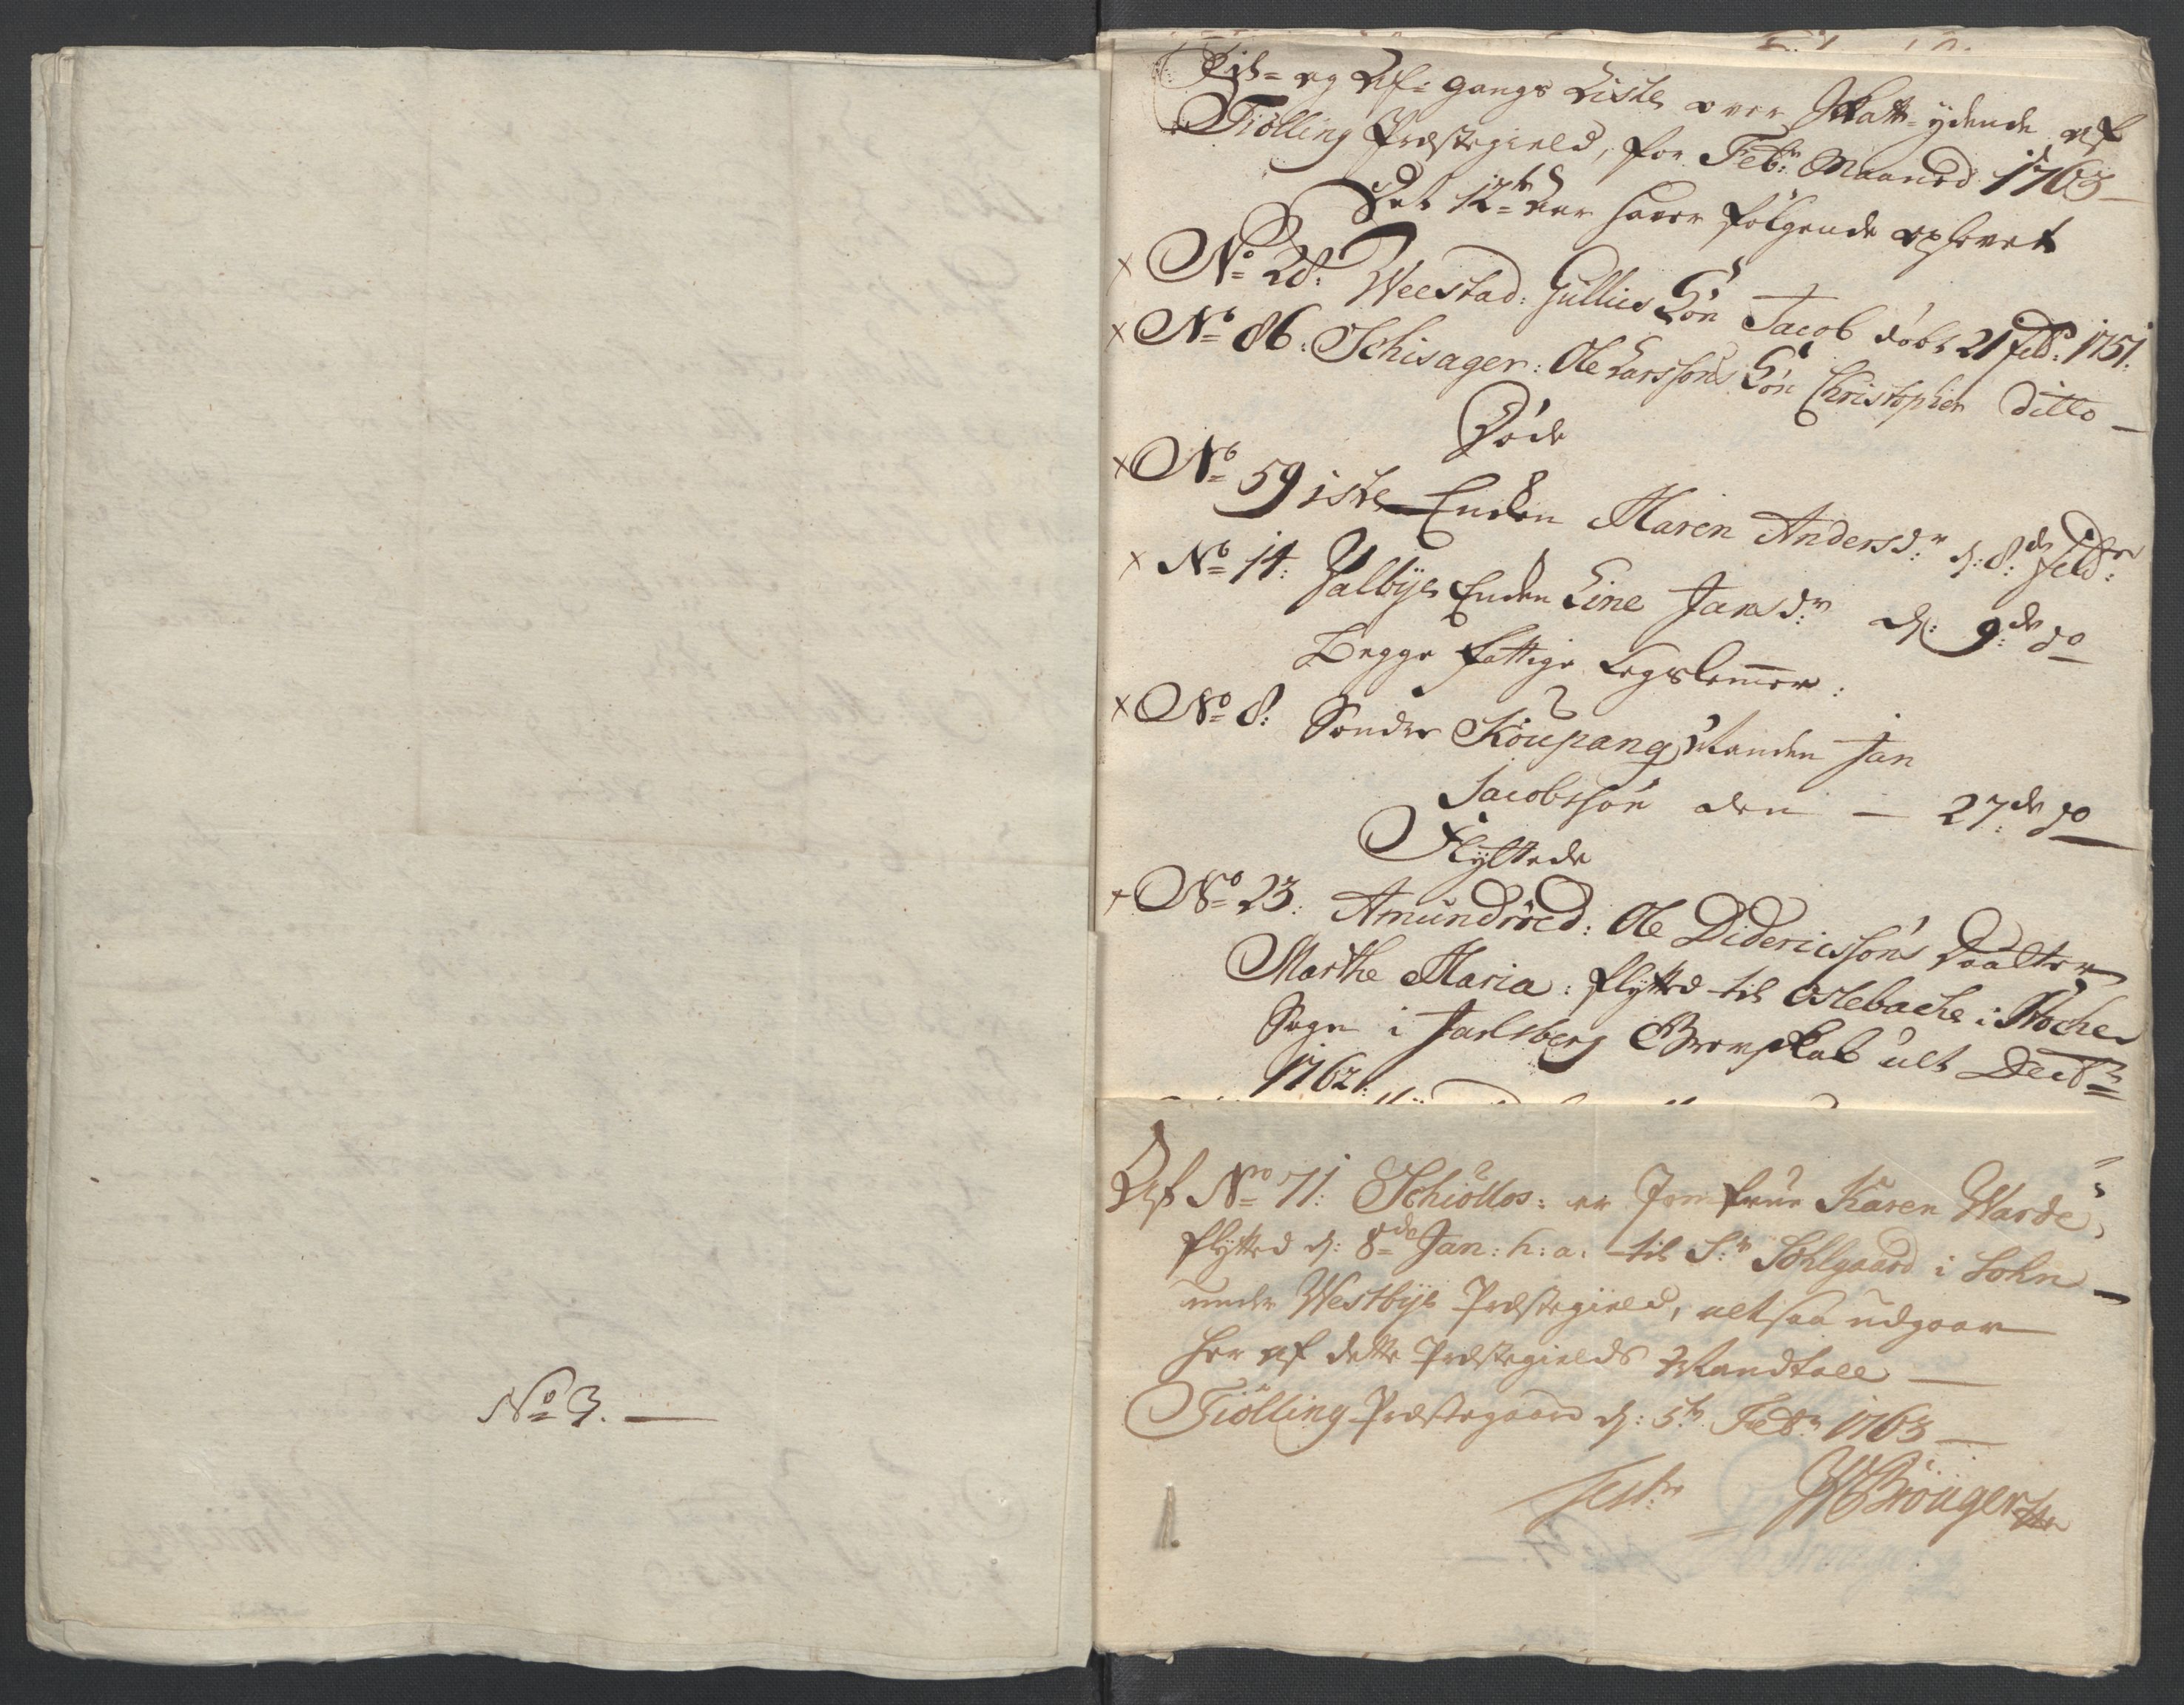 No 3. —
Til- og Af-gangs Liste over Skatt-ydende af
Tiölling Præstegield, for Febr: Maaned 1763 —
Det 12te Aar haver følgende opfyldt
x No 28: Weestad: Gullics Søn Jacob døbt 21 Feb: 1751:
x No 86: Schisager: Ole Larssøns Søn Christopher ditto —
Døde
x No 59 Enken Maren Andersd:r d: 8de Feb:
x No 14: Halbye Enken Line Jansd:r d: 9de do
Begge fattige Legslemmer:
x No 8: Sonder Köupang Manden Jan
Jacobssøn den — 27de do
Flyttede
x No 23: Amundröed: Ole Didericssøns Daatter
Marthe Maria: flytted til Oslebache i Stoche
Sogn i Jarlsberg Grevskab ult Decbr
1762:
Af No 71: Schiöllos: er Jomfrue Karen Warde,
flytted d: 8de Jan: h: a: til S:r Sohlgaard i Sohn —
under Westbye Præstegield, altsaa udgaar
her af dette Præstegields Mandtall —
Tiölling Præstegaard d: 5te Febr 1763 —
test: W Bröuger